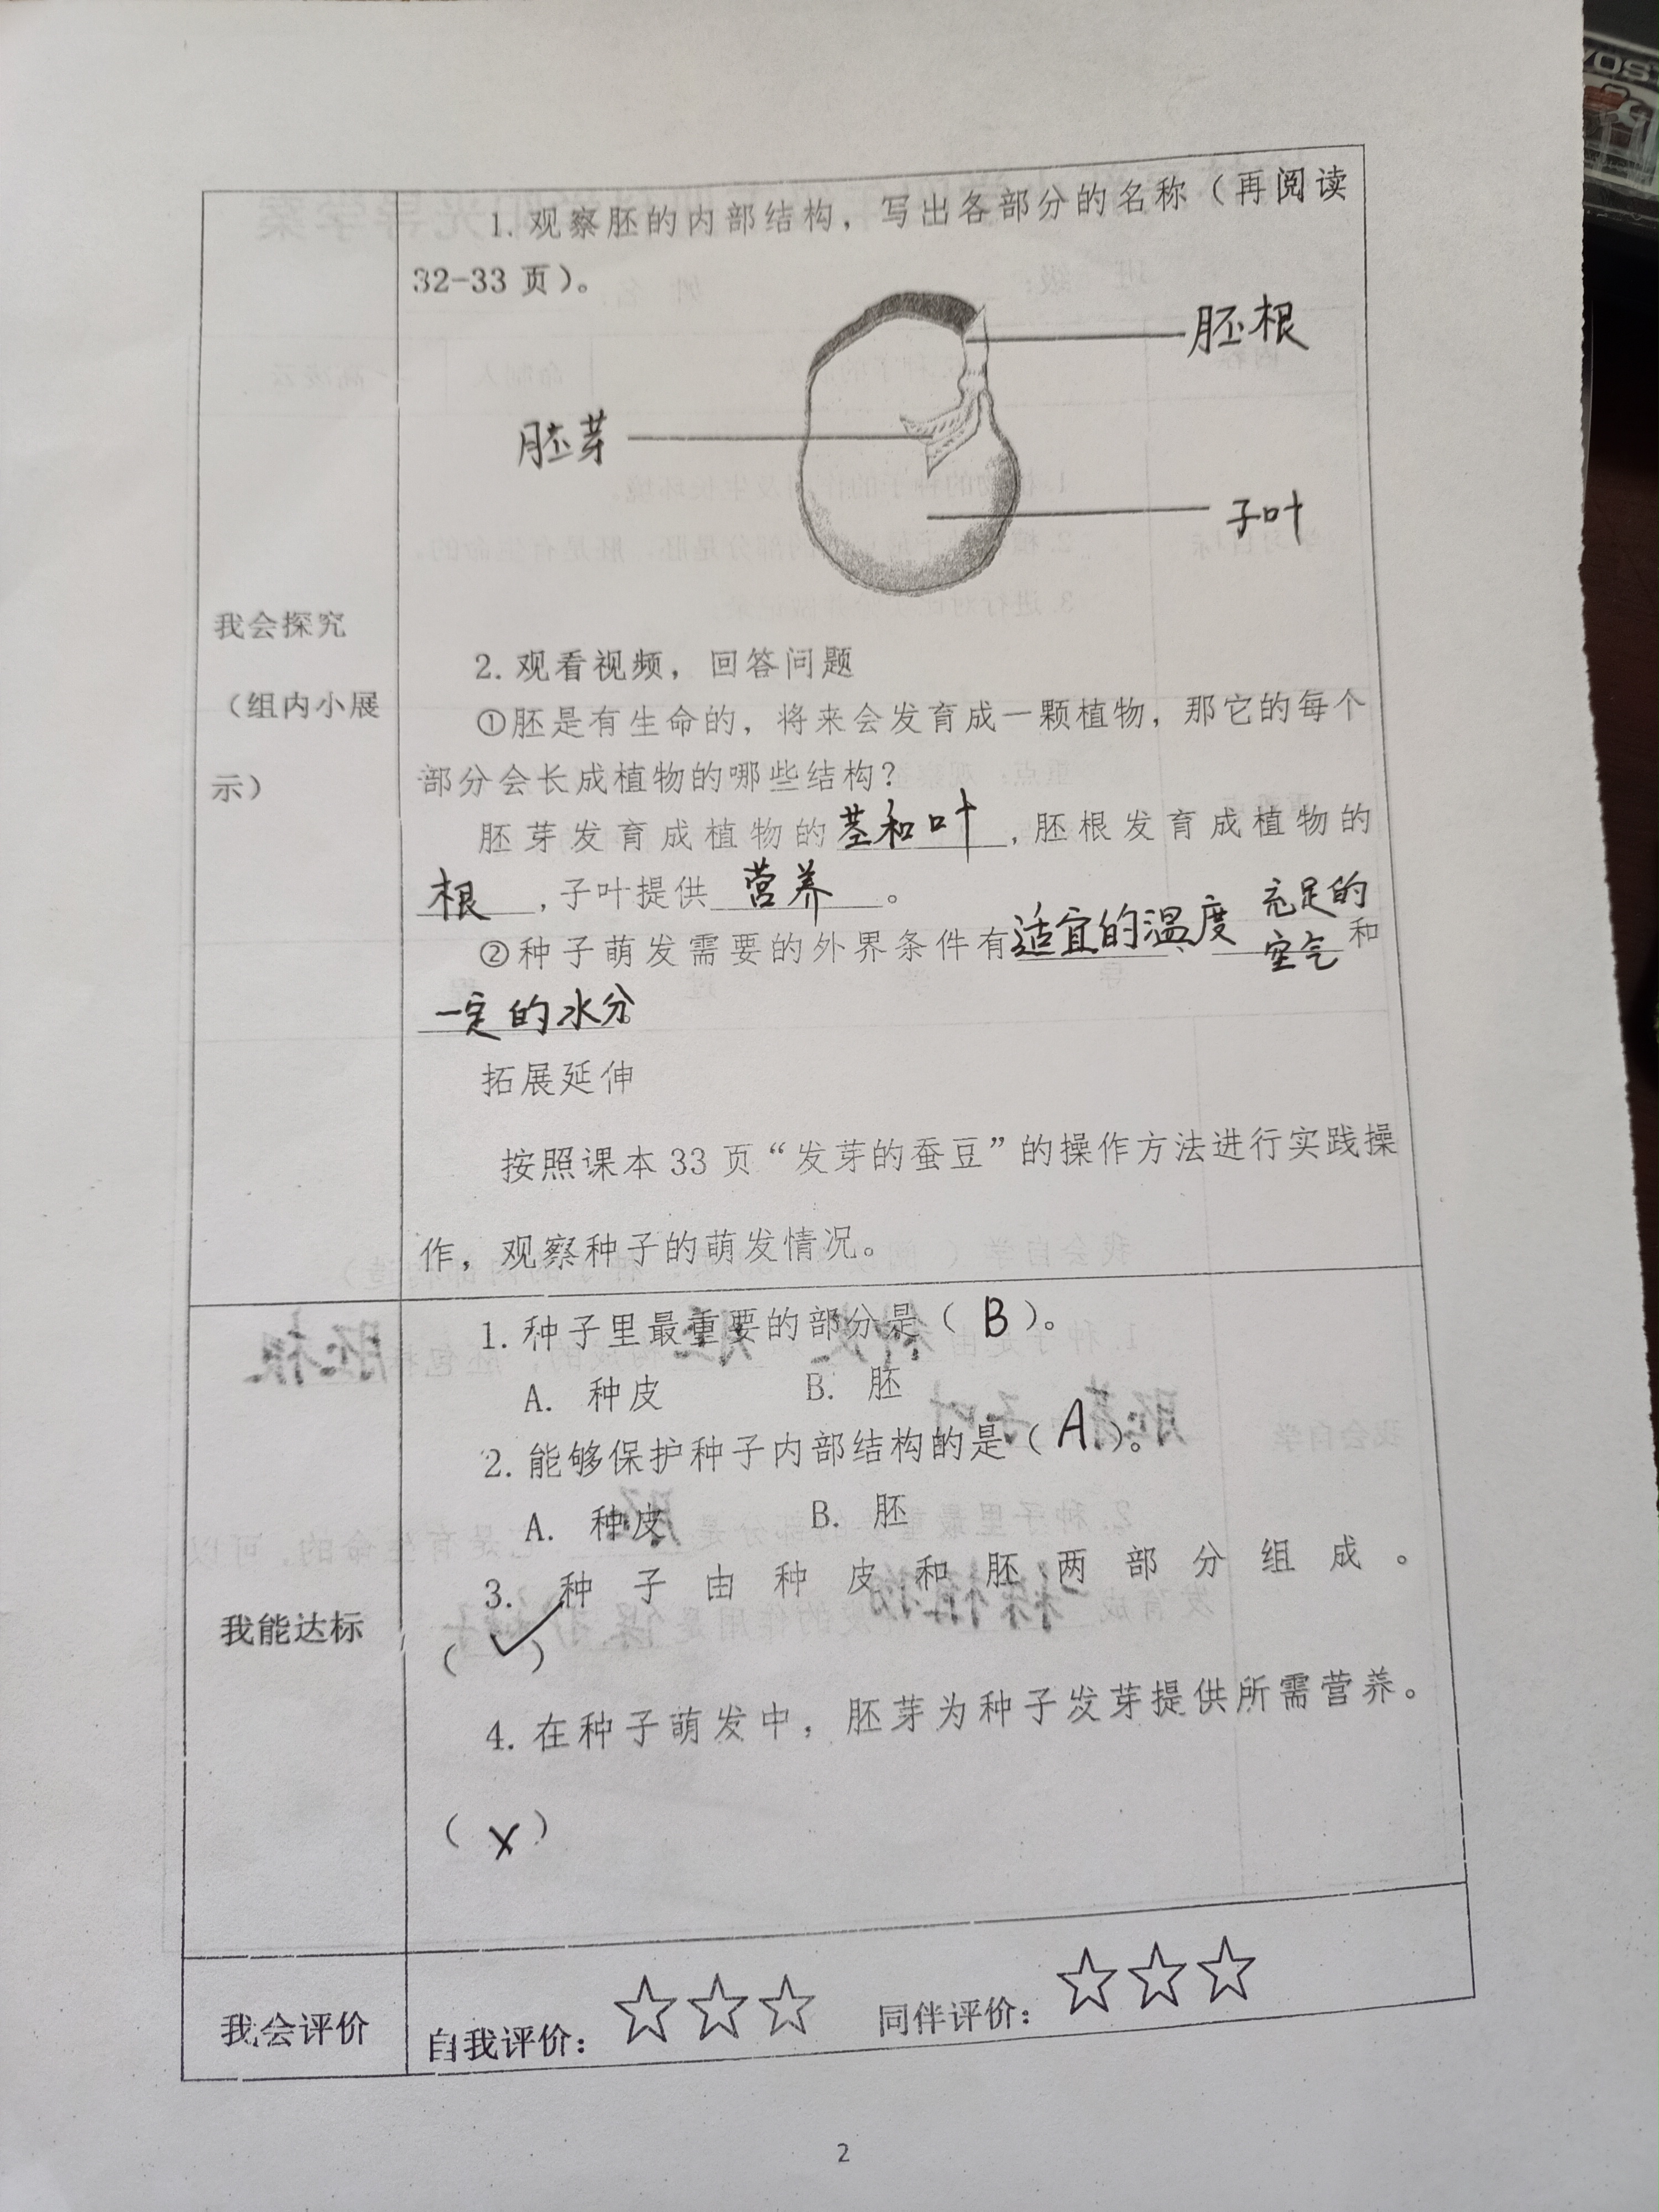 1. 观察胚的内部结构，写出各部分的名称（再阅读
32-33 页）。
胚根
胚芽
子叶
我会探究
（组内小展
示）
2. 观看视频，回答问题
①胚是有生命的，将来会发育成一颗植物，那它的每个
部分会长成植物的哪些结构？
胚芽发育成植物的茎和叶，胚根发育成植物的
根，子叶提供营养。
②种子萌发需要的外界条件有适宜的温度、充足的空气和
一定的水分。
拓展延伸
按照课本 33 页“发芽的蚕豆”的操作方法进行实践操
作，观察种子的萌发情况。
我能达标
1. 种子里最重要的部分是（ B ）。
A. 种皮 B. 胚
2. 能够保护种子内部结构的是（ A ）。
A. 种皮 B. 胚
3. 种子由种皮和胚两部分组成。
（ ✓ ）
4. 在种子萌发中，胚芽为种子发芽提供所需营养。
（ × ）
我会评价
自我评价：☆☆☆ 同伴评价：☆☆☆
2